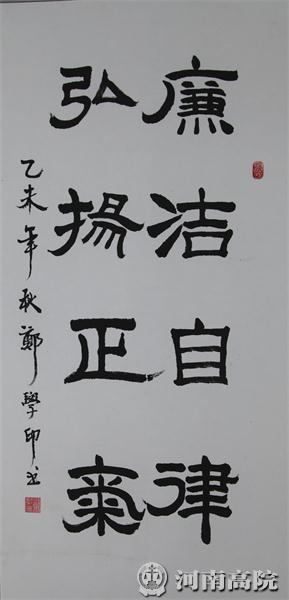 廉洁自律
弘揚正氣
乙未年秋鄭學印书
河南高院